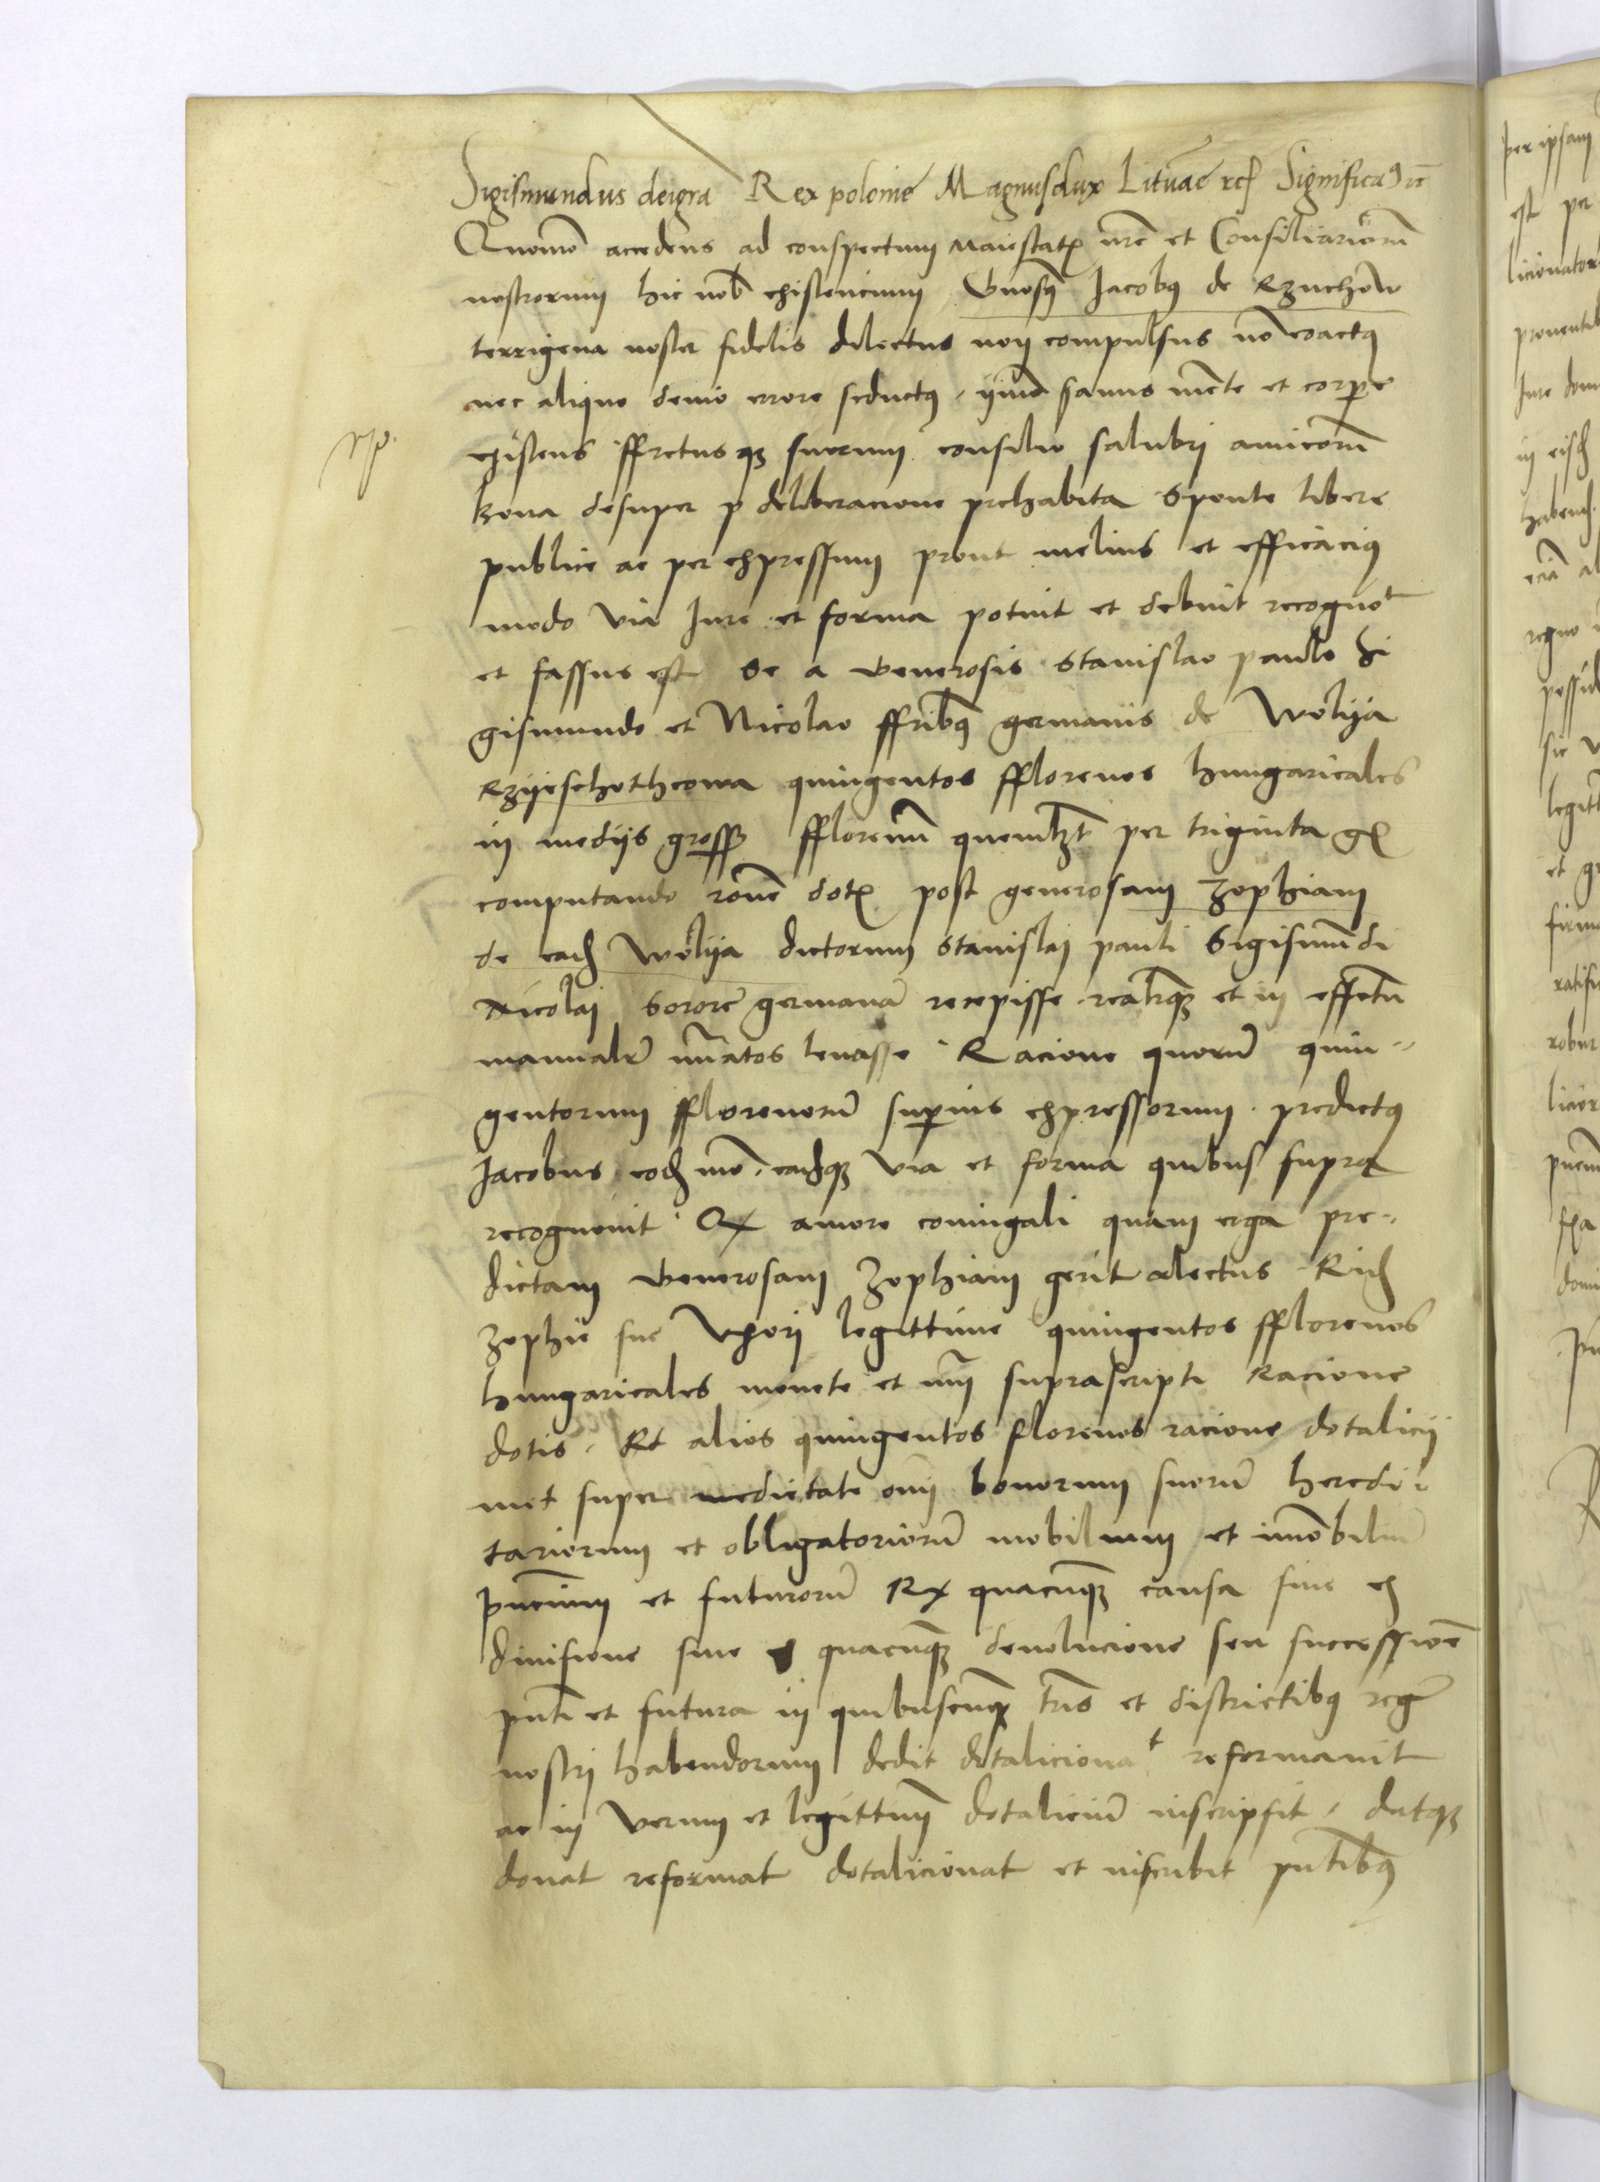 Sigismundus dei gra Rex polonie Magnusdux Lituae etc Significam9 etc
Quomo accedens ad conspectum Maiestatis nre et Consiliariorum
nostrorum hic nob existencium Gnosus Jacobus de Rzuchow
terrigena noster fidelis dilectus non compulsus no coactus
nec aliquo devio errore seductus, ymo sanus mente et corpore
existens ffretusque suorum consilio salubri amicorum
bona desuper p deliberacione prehabita Sponte libere
publice ac per expressum prout melius et efficacius
modo via Jure et forma potuit et debuit recognot
et fassus est Se a Generosis Stanislao paulo Si
gismundo et Nicolao ffribus germanis de Wolija
quingentos fflorenos hungaricales
in medijs gross fflorenum quemlzt per triginta gr
computando rone dotis post generosam Zophiam
de ead Wolija dictorum Stanislai pauli Sigismundi
Nicolai Sorore germana recepisse realique et in effectu
manualr nuatos levasse Racione quorum quin-
gentorum fflorenorum superius expressorum predictus
Jacobus eod mo eadque via et forma quibus supra
recognovit Ex amore coniugali quam erga pre-
dictam Generosam Zophiam gerit allectus Eid
Zophie sue Uxori legittime quingentos fflorenos
hungaricales monete et nui suprascripti Racione
dotis, Et alios quingentos florenos racione dotalicij
met super medietate oim bonorum suorum heredi-
tariorum et obligatoriorum mobilium et imobilium
pncium et futurorum Ex quacunque causa sive ex
divisione sive quacunque devolucione seu successione
pnti et futura in quibuscunque tris et districtibus regni
nostri habendorum dedit dotalicionat reformavit
ac in verum et legittimum dotalicium inscripsit, datque
donat reformat dotalicionat et inscribit pntibus